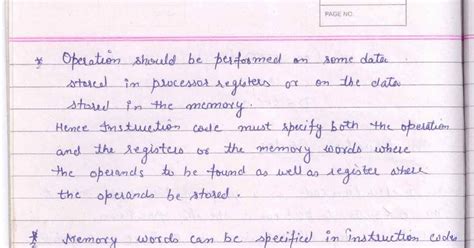 PAGE NO.
* Operation should be performed on some data
stored in processor registers or on the data
stored in the memory.
Hence Instruction code must specify both the operation
and the registers or the memory words where
the operands to be found as well as register where
the operands be stored.
* Memory words can be specified in instruction codes